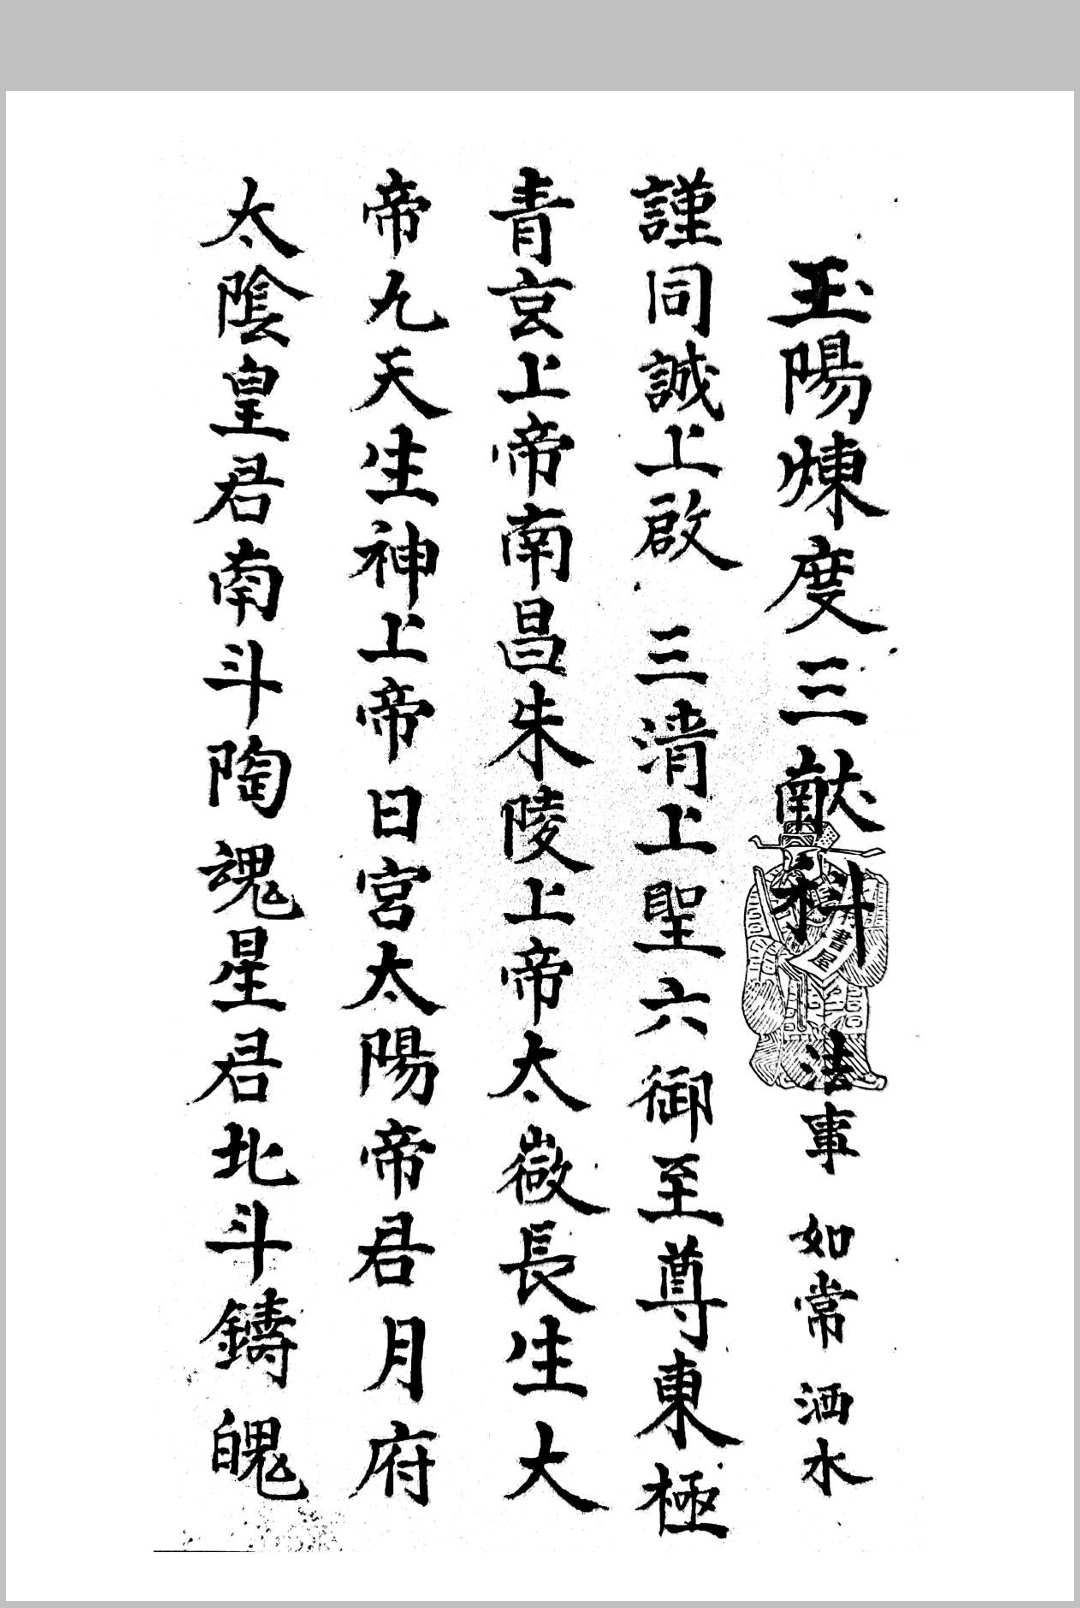 玉陽煉度三献科 法事 如常 洒水
謹同誠上啟 三清上聖六御至尊東極
青玄上帝南昌朱陵上帝太微長生大
帝九天生神上帝日宮太陽帝君月府
太陰皇君南斗陶魂星君北斗鑄魄
書屋